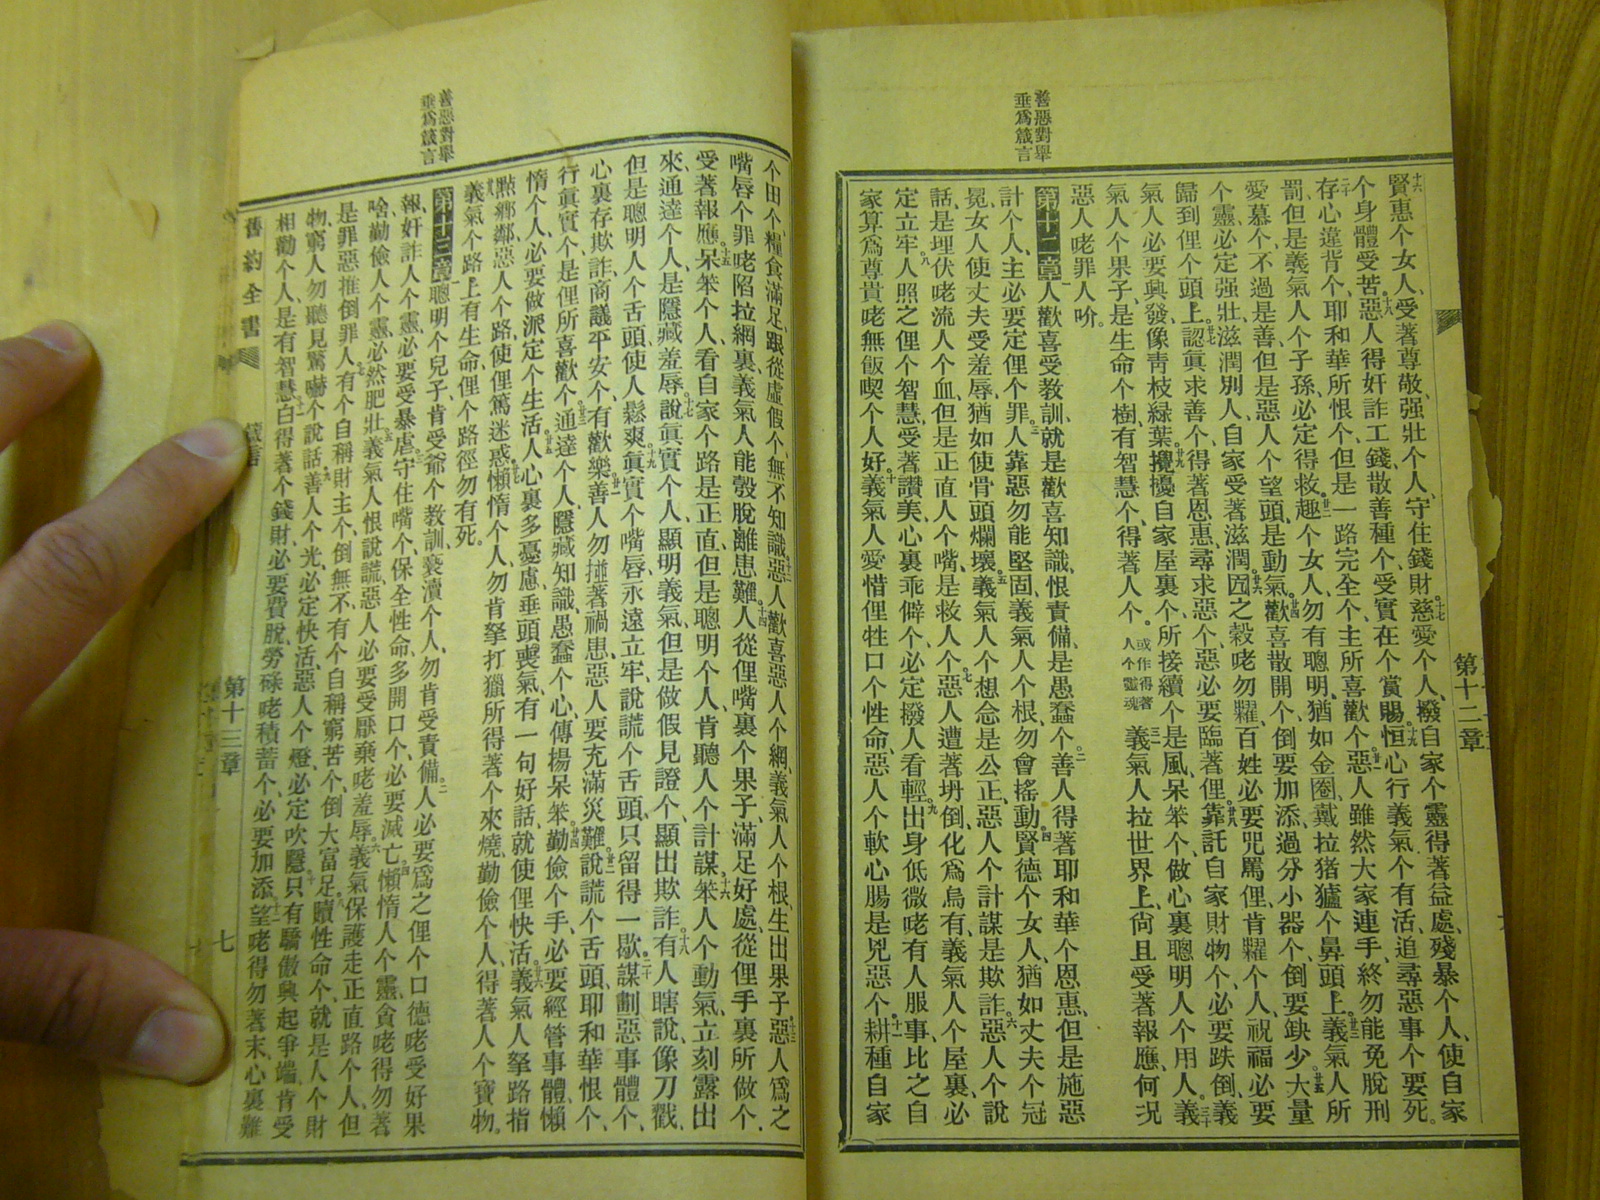 善惡對舉
垂爲箴言
賢惠个女人、受著尊敬、强壯个人、守住錢財、慈愛个人、撥自家个靈得著益處、殘暴个人、使自家
个身體受苦、惡人得奸詐工錢、散善種个、受實在个賞賜、恒心行義氣个有活、追尋惡事个要死。
存心違背个、耶和華所恨个、但是一路完全个、主所喜歡个、惡人雖然大家連手、終勿能免脫刑
罰、但是義氣人个子孫、必定得救、趣个女人、勿有聰明、猶如金圈戴拉猪玀个鼻頭上、義氣人所
愛慕个、不過是善、但是惡人个望頭、是動氣、歡喜散開个、倒要加添、過分小器个、倒要缺少、大量
个靈、必定强壯、滋潤別人、自家受著滋潤、囥之穀咾勿糶、百姓必要咒罵俚、肯糶个人、祝福必要
歸到俚个頭上、認眞求善个、得著恩惠、尋求惡个、惡必要臨著俚、靠託自家財物个、必要跌倒、義
氣人必要興發、像靑枝綠葉、攪擾自家屋裏个、所接續个是風、呆笨个、做心裏聰明人个用人、義
氣人个果子、是生命个樹、有智慧个、得著人个。或作得著人个靈魂 義氣人拉世界上、尙且受著報應、何况
惡人咾罪人吤。
第十二章 人歡喜受教訓、就是歡喜知識、恨責備、是愚蠢个、善人得著耶和華个恩惠、但是施惡
計个人、主必要定俚个罪、人靠惡勿能堅固、義氣人个根、勿會搖動、賢德个女人、猶如丈夫个冠
冕、女人使丈夫受羞辱、猶如使骨頭爛壞、義氣人个想念是公正、惡人个計謀是欺詐、惡人个說
話、是埋伏咾流人个血、但是正直人个嘴、是救人个、惡人遭著坍倒、化爲烏有、義氣人个屋裏、必
定立牢、人照之俚个智慧、受著讚美、心裏乖僻个、必定撥人看輕、出身低微咾有人服事、比之自
家算爲尊貴咾無飯喫个人好、義氣人愛惜俚牲口个性命、惡人个軟心腸、是兇惡个、耕種自家
第十二章
善惡對舉
垂爲箴言
个田个、糧食滿足、跟從虛假个、無不知識、惡人歡喜惡人个網、義氣人个根、生出果子、惡人爲之
嘴唇个罪咾陷拉網裏、義氣人能彀脫離患難、人從俚嘴裏个果子、滿足好處、從俚手裏所做个、
受著報應、呆笨个人、看自家个路是正直、但是聰明个人、肯聽人个計謀、笨人个動氣、立刻露出
來、通達个人、是隱藏羞辱、說眞實个人、顯明義氣、但是做假見證个、顯出欺詐、有人瞎說、像刀戳、
但是聰明人个舌頭、使人鬆爽、眞實个嘴唇永遠立牢、說謊个舌頭、只留得一歇、謀劃惡事體个、
心裏存欺詐、商議平安个、有歡樂、善人勿掽著禍患、惡人要充滿災難、說謊个舌頭、耶和華恨个、
行眞實个、是俚所喜歡个、通達个人、隱藏知識、愚蠢个心、傳揚呆笨、勤儉个手、必要經管事體、懶
惰个人、必要做派定个生活、人心裏多憂慮、垂頭喪氣、有一句好話、就使俚快活、義氣人拏路指
點鄉鄰、惡人个路、使俚篤迷惑、懶惰个人、勿肯拏打獵所得著个來燒、勤儉个人、得著人个寶物、
義氣个路上有生命、俚个路徑勿有死。
第十三章 聰明个兒子、肯受爺个教訓、褻瀆个人、勿肯受責備、人必要爲之俚个口德咾受好果
報、奸詐人个靈、必要受暴虐、守住嘴个、保全性命、多開口个、必要滅亡、懶惰人个靈、貪咾得勿著
啥、勤儉人个靈、必然肥壯、義氣人恨說謊、惡人必要受厭棄咾羞辱、義氣保護走正直路个人、但
是罪惡推倒罪人、有个自稱財主个、倒無不、有个自稱窮苦个、倒大富足、贖性命个、就是人个財
物、窮人勿聽見驚嚇个說話、善人个光、必定快活、惡人个燈、必定吹隱、只有驕傲、興起爭端、肯受
相勸个人、是有智慧、白得著个錢財、必要費脫、勞碌咾積蓄个、必要加添、望咾得勿著末、心裏難
舊約全書
箴言
第十三章
七